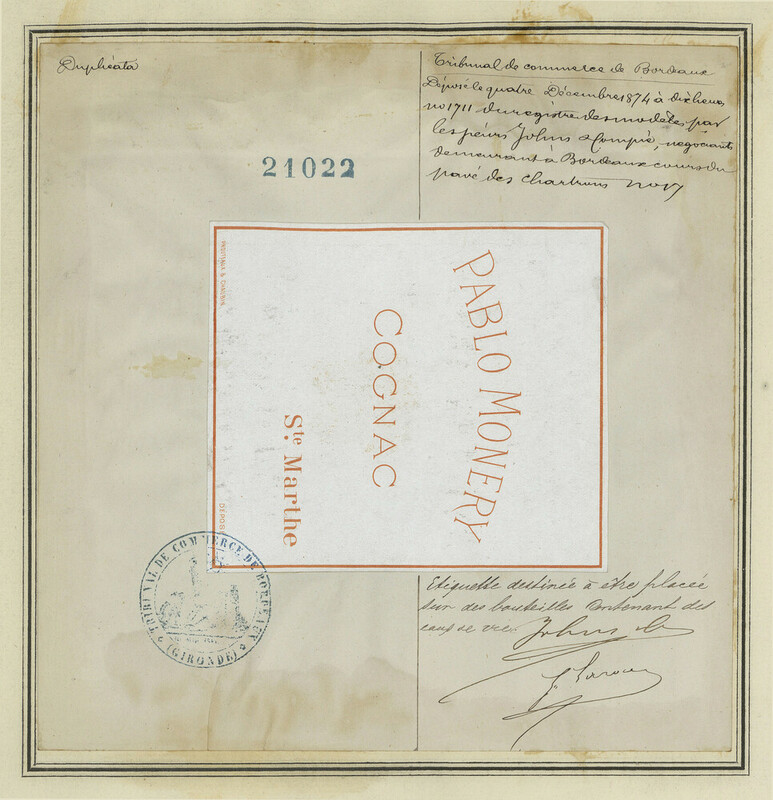 Duplicata
Tribunal de commerce de Bordeaux
Déposé le quatre Décembre 1874 à dix heures
no 1711 du registre des modèles par
les sieurs Johns & Compie, negociants
demeurant à Bordeaux cours du
pavé des Chartrons no 17
21022
PABLO MONERY
COGNAC
Ste. Marthe
DÉPOSÉ
TRIBUNAL DE COMMERCE DE BORDEAUX
(GIRONDE)
Etiquette destinée à être placée
sur des bouteilles contenant des
eaux de vie. Johns